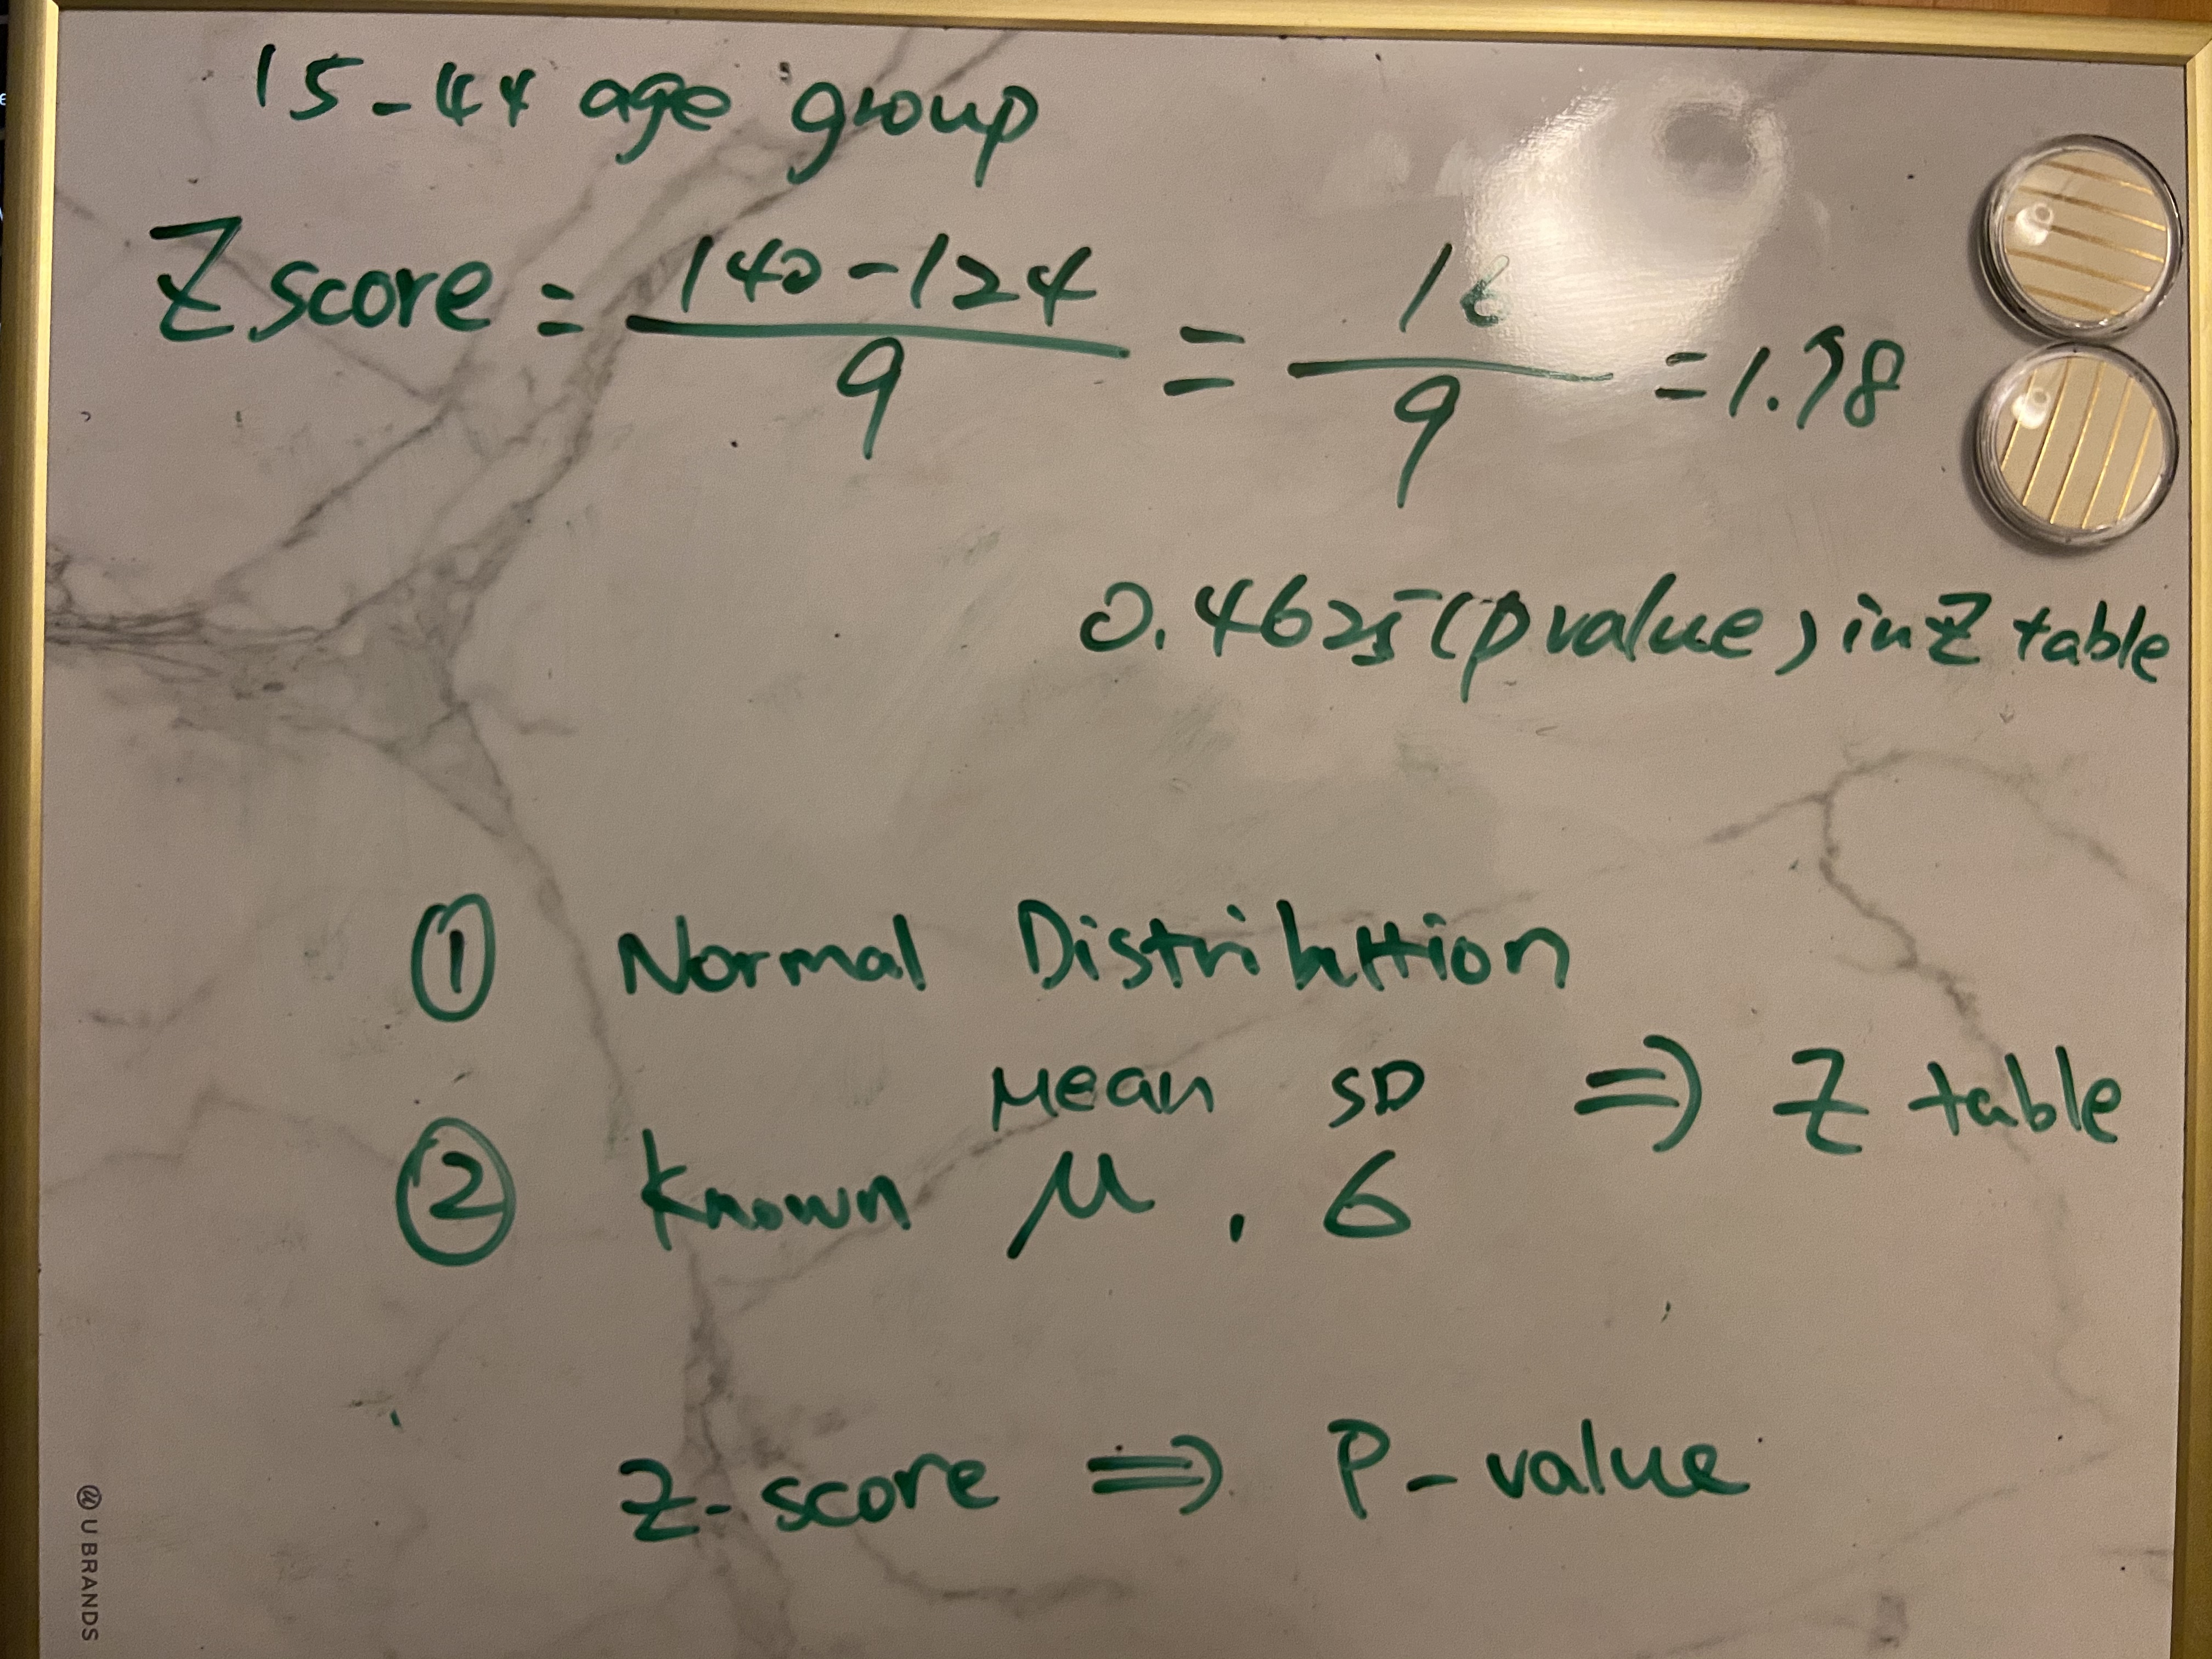 15-44 age group
Z score = 140-124 / 9 = 16 / 9 = 1.78
0.4625 (p value) in Z table
① Normal Distributtion
Mean SD ⇒ Z table
② Known μ, σ
Z-score ⇒ P-value
U BRANDS